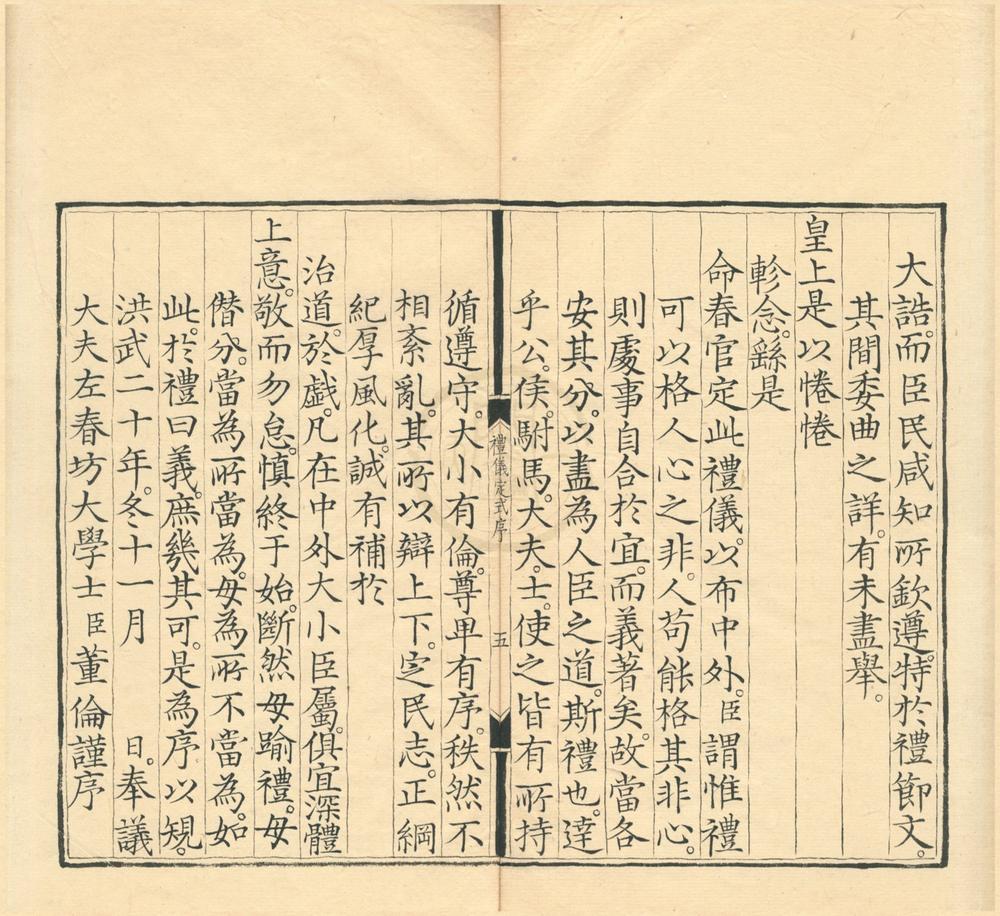 大誥。而臣民咸知所欽遵。特於禮節文。
其間委曲之詳。有未盡舉。
皇上是以惓惓
軫念。繇是
命春官定此禮儀。以布中外。臣謂惟禮
可以格人心之非。人苟能格其非心。
則處事自合於宜。而義著矣。故當各
安其分。以盡為人臣之道。斯禮也。達
乎公。侯。駙馬。大夫。士。使之皆有所持
禮儀定式序
五
循遵守。大小有倫。尊卑有序。秩然不
相紊亂。其所以辯上下。定民志。正綱
紀厚風化。誠有補於
治道。於戲。凡在中外大小臣屬。俱宜深體
上意。敬而勿怠。慎終于始。斷然毋踰禮。毋
僭分。當為所當為。毋為所不當為。如
此。於禮曰義。庶幾其可。是為序以規。
洪武二十年。冬十一月　日。奉議
大夫左春坊大學士臣董倫謹序